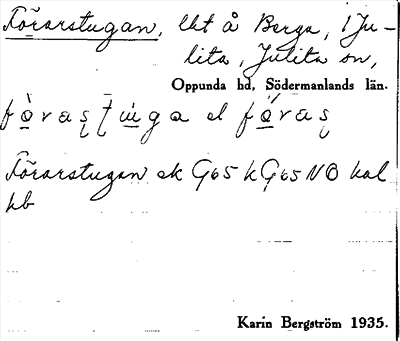 Förarstugan, lht å Berga, i Ju-
lita, Julita sn,
Oppunda hd, Södermanlands län.
Förarstugan ek G65 k G65 NO kal
hb
Karin Bergström 1935.